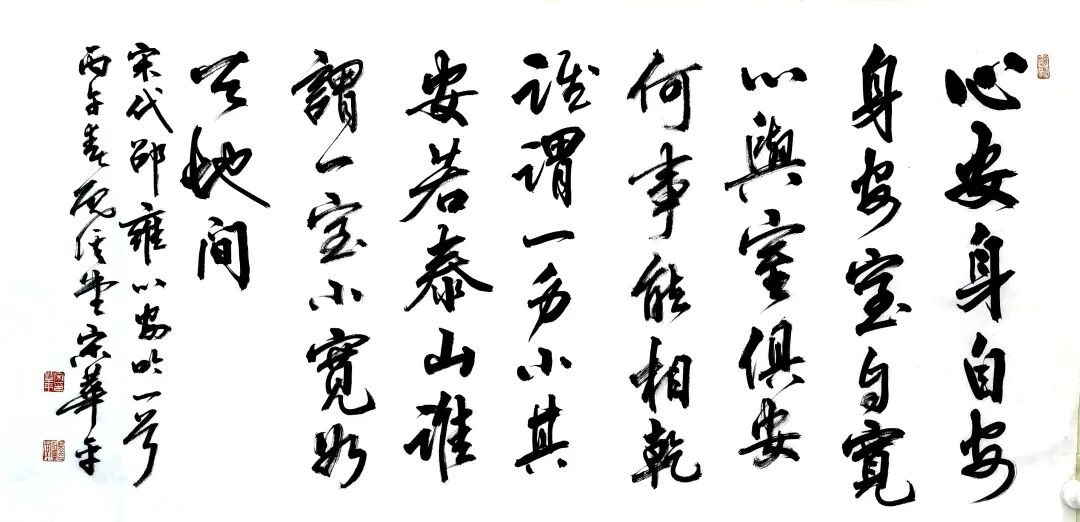 心安身自安
身安室自寬
心與室俱安
何事能相乾
谁谓一身小其
安若泰山谁
謂一室小寬如
天地间
宋代邵雍心安吟一首
丙午春堂宋華平